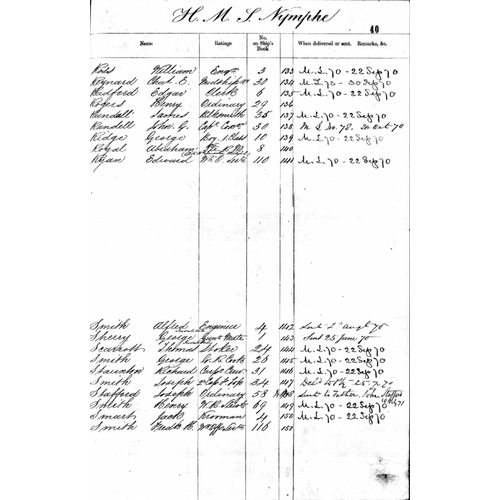 H. M. S. Nymphe
40
Name Ratings No. on Ship's Book When delivered or sent. Remarks, &c.
Ross William Engr 3 133 M. L. 70 - 22 Sep 70
Raynard Chas. E. Midship 30 134 M. L. 70 - 30 Sep 70
Redford Edgar Clerk 6 135 M. L. 70 - 22 Sep 70
Rogers Henry Ordinary 29 136
Rundall James Blksmith 35 137 M. L. 70 - 22 Sep 70
Randell John. G. Capt Cox 30 138 M L No. 70. 20 Oct 70
Ridge George Boy. 1. Class 10 139 M. L. 70 - 22 Sep 70
Royal Abraham 8 140
Ryan Edward 110 141 M. L. 70 - 22 Sep 70
Smith Alfred Engineer 4 142 Sent 2 Augt 70
Sherry George 1 143 Sent 25 June 70
Scarrott Thomas Stoker 24 144 M. L. 70 - 22 Sep 70
Smith George Cook 26 145 M. L. 70 - 22 Sep 70
Staunton Richard Carps Crew 31 116 M. L. 70 - 22 Sep 70
Smith Joseph 2 Capt Top 34 117 25. 7. 70
Stafford Joseph Ordinary 58 Sent to Father. John Stafford
Smith Henry 69 149 M. L. 70 - 22 Sep 70
Smart Jack Krooman 4 150 M. L. 70 - 22 Sep 70
Smith 116 151